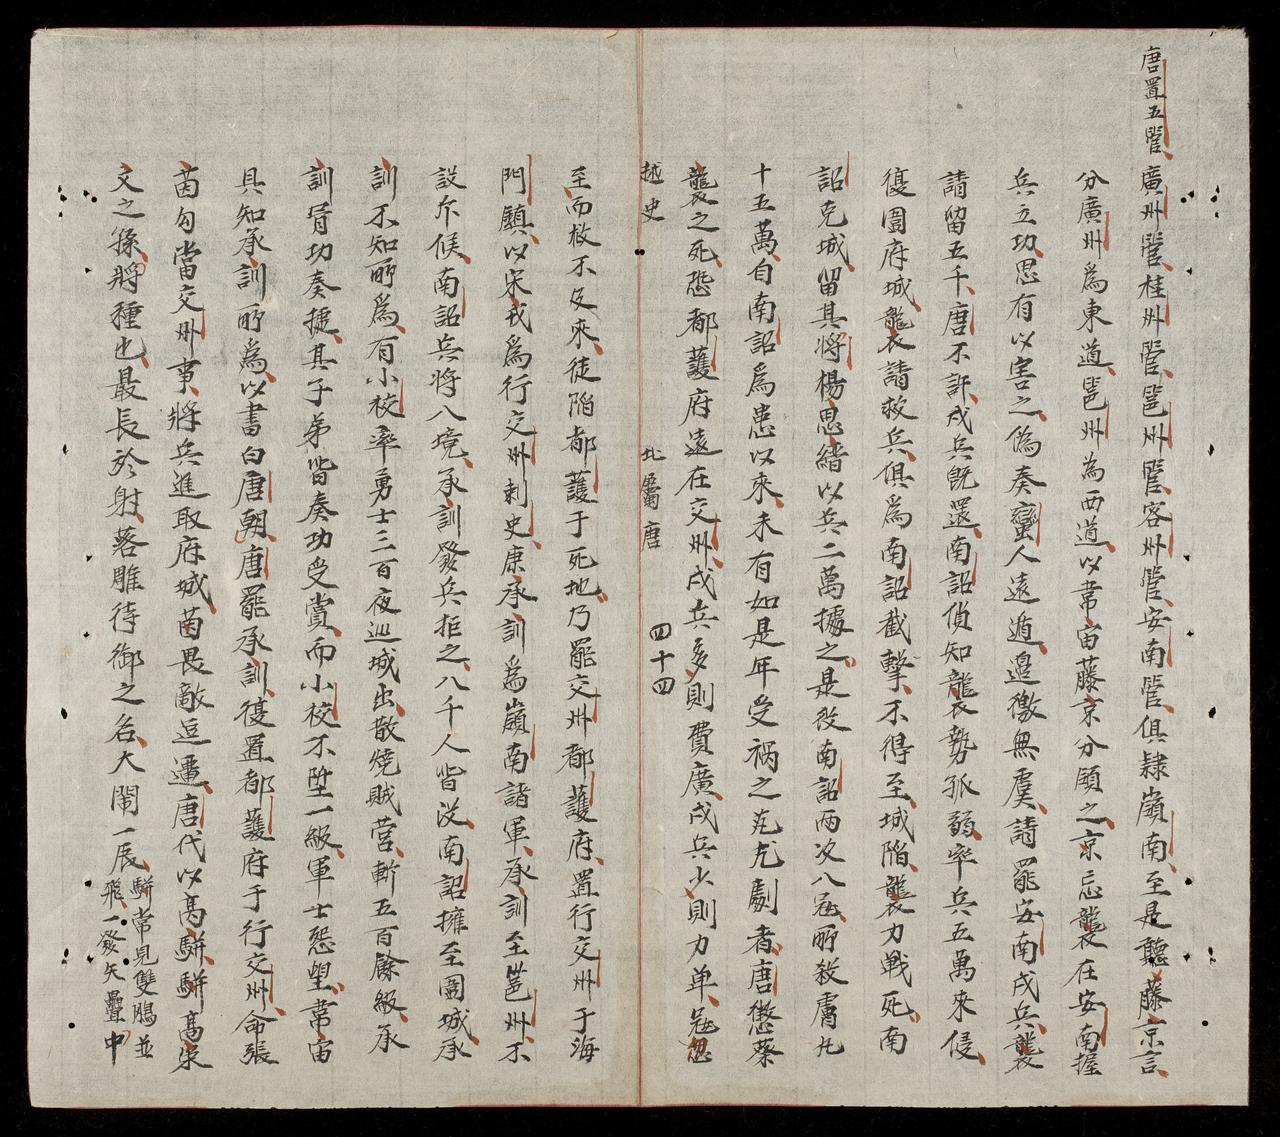 唐置五管廣州管桂州管邕州管容州管安南管俱隸嶺南至是聽藤京言
分廣州爲東道邕州為西道以韋宙藤京分領之京忌襲在安南握
兵立功思有以害之偽奏蠻人遠遁邊徼無虞請罷安南戍兵襲
請留五千唐不許戍兵既還南詔偵知襲勢孤弱率兵五萬來侵
復圍府城襲請救兵俱爲南詔截擊不得至城陷襲力戰死南
詔克城留其將楊思縉以兵二萬據之是役南詔兩次入冦所殺虜九
十五萬自南詔爲患以來未有如是年受禍之尤劇者唐懲蔡
襲之死恐都護府遠在交州戍兵多則費廣戍兵少則力单冦忽
越史 北屬唐 四十四
至而救不及來徒陷都護于死地乃罷交州都護府置行交州于海
門鎮以宋戎爲行交州刺史康承訓爲嶺南諸軍承訓至邕州不
設斥候南詔兵將入境承訓發兵拒之八千人皆没南詔擁至圍城承
訓不知所爲有小校率勇士三百夜巡城出散燒賊营斬五百餘級承
訓冐功奏捷其子弟皆奏功受賞而小校不陞一級軍士怨望韋宙
具知承訓所爲以書白唐朝唐罷承訓復置都護府于行交州命張
茵勾當交州事將兵進取府城茵畏敵逗遛唐代以高駢駢高崇
文之孫將種也最長於射落雕待御之名大閙一辰駢常見雙鵰並
飛一發矢疊中